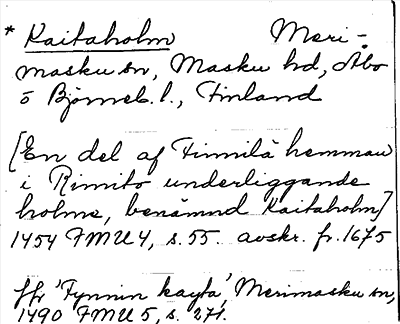 * Kaitaholm Meri-
masku sn, Masku hd, Åbo
o Björneb. l., Finland
[En del af Finnilä hemman
i Rimito underliggande
holme, benämnd Kaitaholm]
1454 FMU 4, s. 55. avskr. fr. 1675
Jfr 'Tynnin kayta', Merimasku sn,
1490 FMU 5, s. 271.